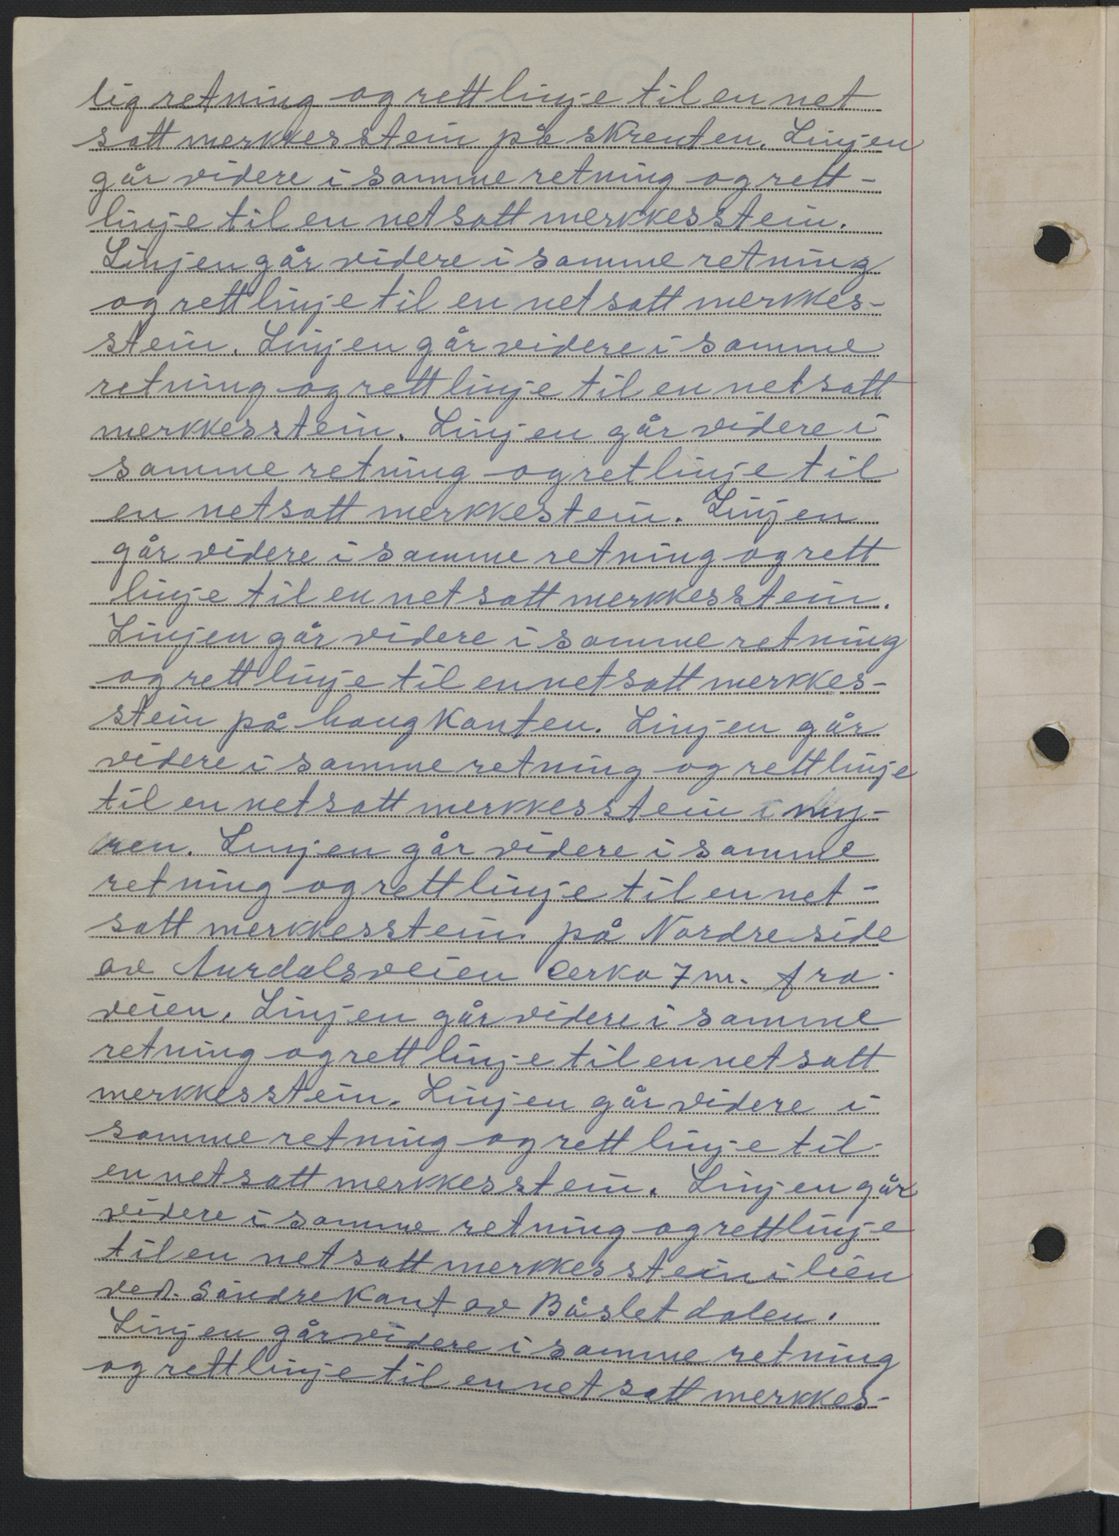 lig retning og rett linje til en net
satt merkkesstein på skrenten. Linjen
går videre i samme retning og rett-
linje til en net satt merkkesstein.
Linjen går videre i samme retning
og rett linje til en net satt merkkes-
stein. Linjen går videre i samme
retning og rett linje til en net satt
merkkesstein. Linjen går videre i
samme retning og ret linje til
en net satt merkkestein. Linjen
går videre i samme retning og rett
linje til en net satt merkkesstein.
Linjen går videre i samme retning
og rett linje til en net satt merkkes-
stein på haugkanten. Linjen går
videre i samme retning og rett linje
til en net satt merkkesstein i my-
ren. Linjen går videre i samme
retning og rett linje til en net-
satt merkkesstein på Nordre side
av Aurdalsveien Cerka 7 m. fra
veien. Linjen går videre i samme
retning og rett linje til en net satt
merkkesstein. Linjen går videre i
samme retning og rett linje til
en net satt merkkesstein. Linjen går
videre i samme retning og rett linje
til en net satt merkkesstein i lien
ved. Søndre kant av Båsletdalen.
Linjen går videre i samme retning
og rett linje til en net satt merkkes-